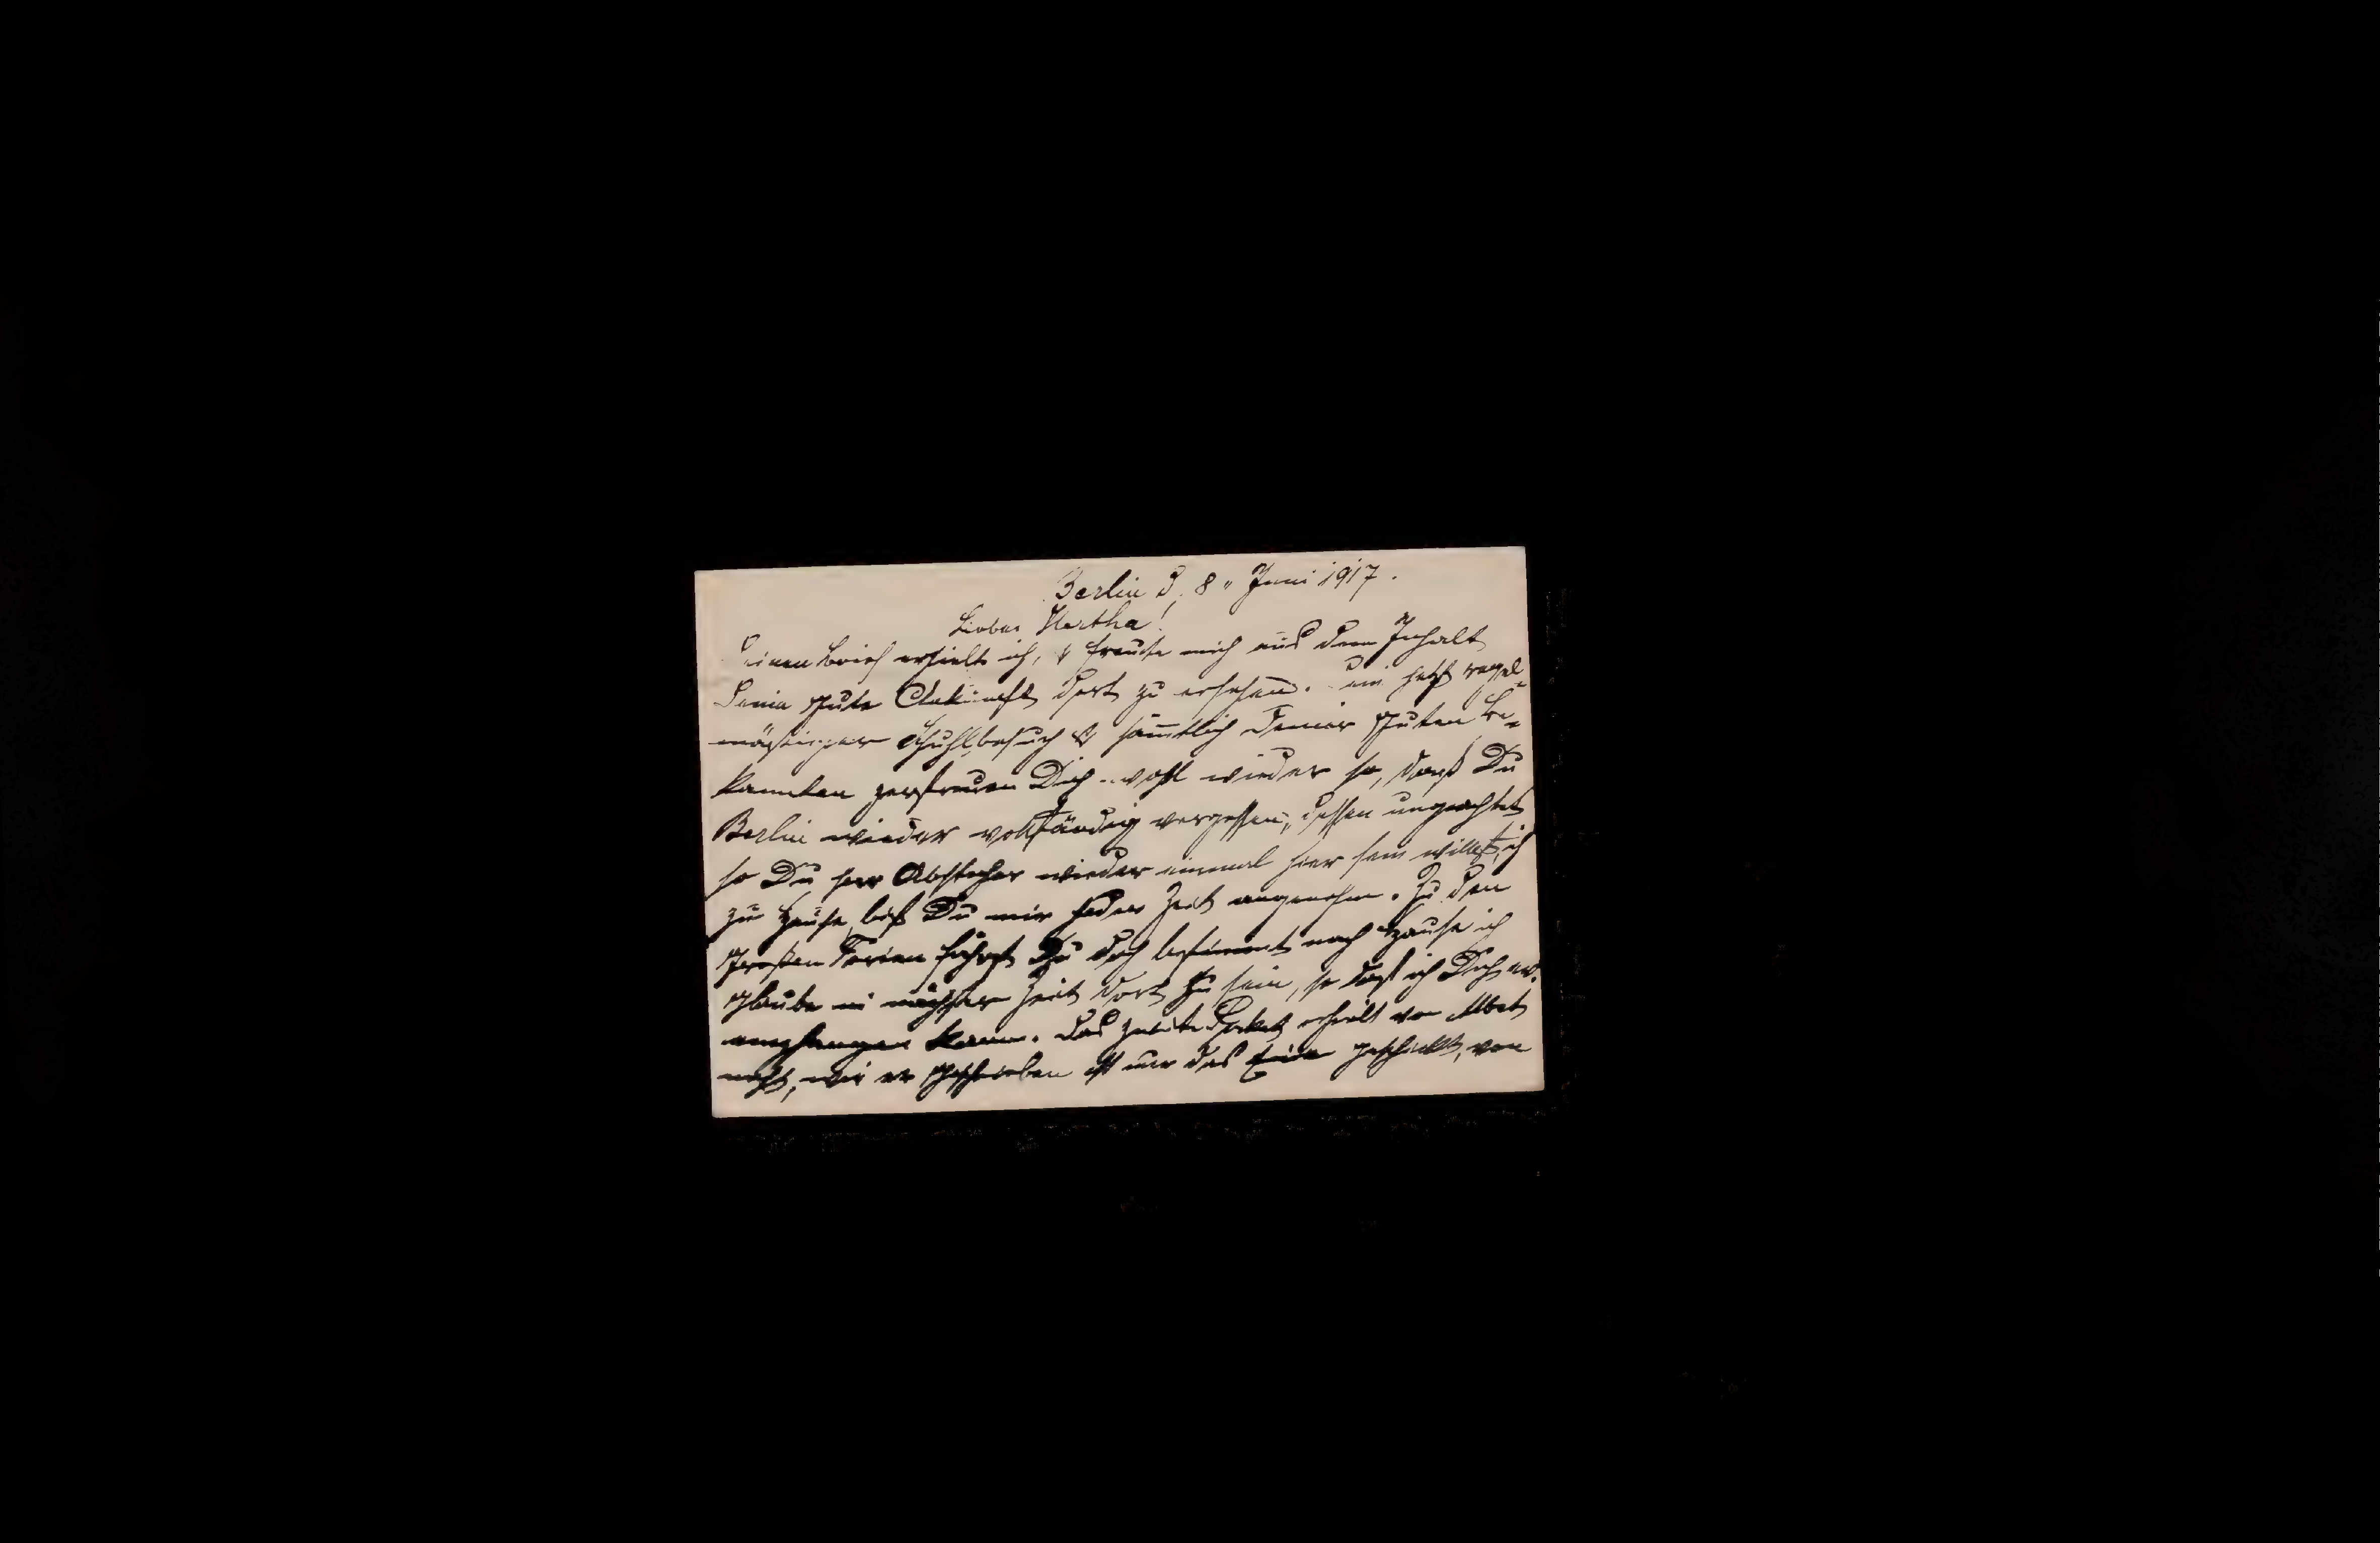 Berlin d. 8. Juni 1917.
Liebe Hertha!
Deinen Brief erhielt ich, & freute mich aus dem Inhalt
Deine gute Ankunft dort zu ersehen. Ein jetzt regel-
mäßiger Schuhlbesuch & sämtlich Deiner guten Be-
kannten zerstreuen Dich wohl wieder so, daß Du
Berlin wieder vollständig vergessen, dessen ungeachtet
so Du per Abstecher wieder einmal hier sein willst, ich
zu Hause, bist Du mir jeder Zeit angenehm. Zu den
großen Ferien fährst Du doch bestimmt nach Hause ich
glaube in nächster Zeit dort zu sein, so daß ich Dich
empfangen kann. Das zweite Paket erhielt
nicht, wie er geschrieben ist nur das Eine geschickt, von